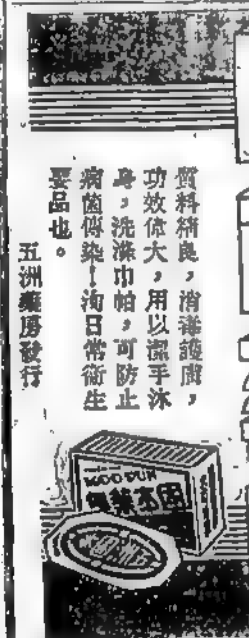 質料精良，消毒護膚，
功效偉大，用以潔手沐
身，洗滌巾帕，可防止
病菌傳染！洵日常衛生
要品也。
五洲藥房發行
固本藥皂